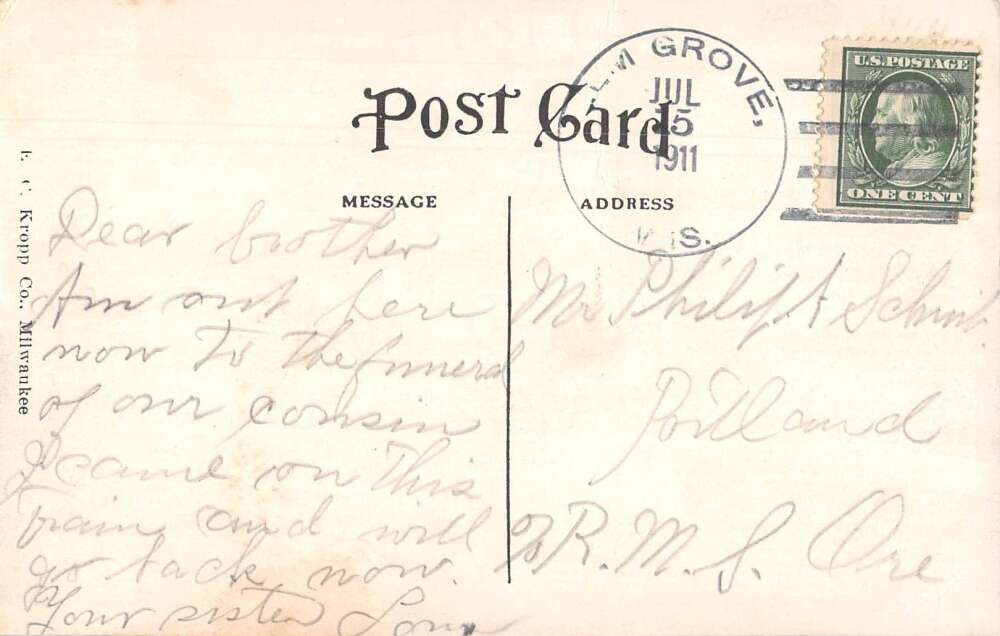 ELM GROVE,
JUL
15
1911
WIS.
U.S. POSTAGE
ONE CENT
Post Card
MESSAGE
ADDRESS
E. C. Kropp Co., Milwaukee
Dear brother
Am out here
now to the funeral
of our cousin
I came on this
train and will
go back now.
Your sister
Mr Philip A
Portland
% R. M. S. Ore